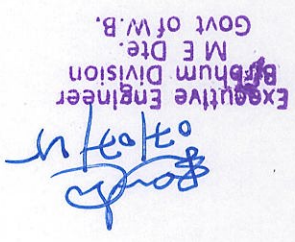 Executive Engineer
Birbhum Division
M E Dte.
Govt of W.B.